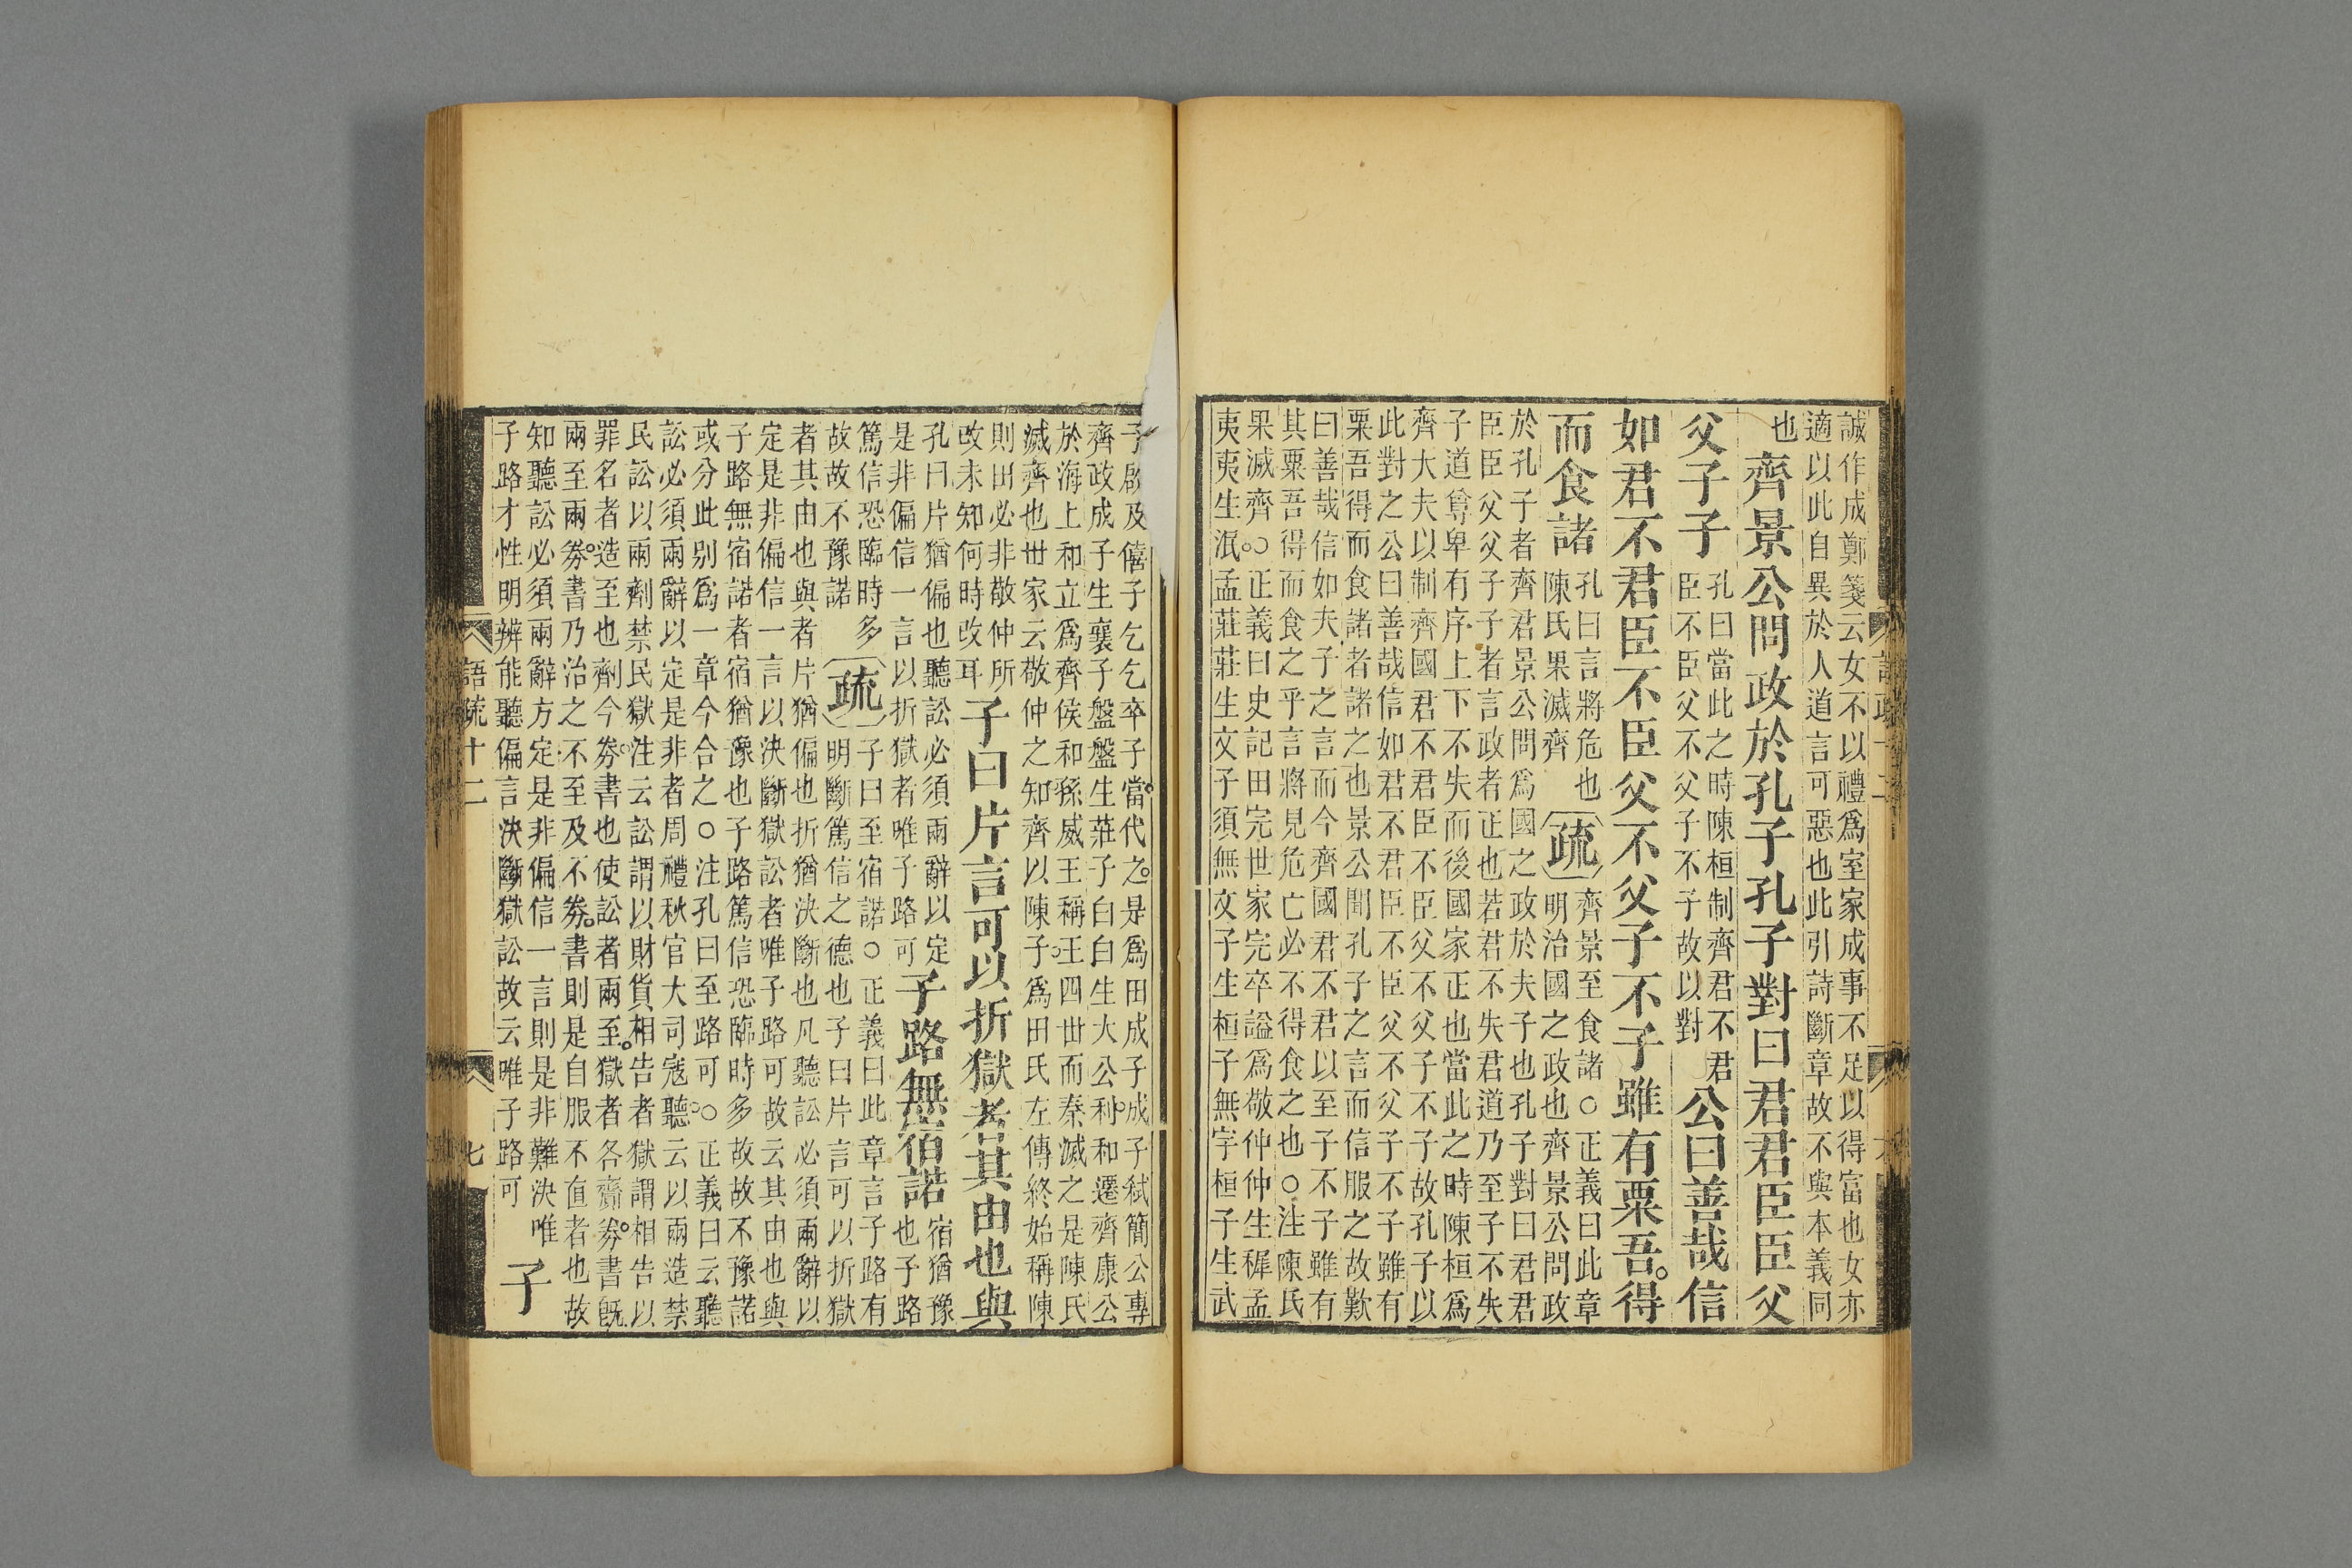 誠作成鄭箋云女不以禮爲室家成事不足以得富也女亦
適以此自異於人道言可惡也此引詩斷章故不與本義同
也
齊景公問政於孔子孔子對曰君君臣臣父
父子子
孔曰當此之時陳桓制齊君不君
臣不臣父不父子不子故以對
公曰善哉信
如君不君臣不臣父不父子不子雖有粟吾得
而食諸
孔曰言將危也
陳氏果滅齊
疏
齊景至食諸○正義曰此章
明治國之政也齊景公問政
於孔子者齊君景公問爲國之政於夫子也孔子對曰君君
臣臣父父子子者言政者正也若君不失君道乃至子不失
子道尊卑有序上下不失而後國家正也當此之時陳桓爲
齊大夫以制齊國君不君臣不臣父不父子不子故孔子以
此對之公曰善哉信如君不君臣不臣父不父子不子雖有
粟吾得而食諸者諸之也景公聞孔子之言而信服之故歎
曰善哉信如夫子之言而今齊國君不君以至子不子雖有
其粟吾得而食之乎言將見危亡必不得食之也○注陳氏
果滅齊○正義曰史記田完世家完卒謚爲敬仲仲生穉孟
夷夷生泯孟莊莊生文子須無文子生桓子無宇桓子生武
子啟及僖子乞乞卒子當代之是爲田成子成子弒簡公專
齊政成子生襄子盤盤生莊子白白生大公和和遷齊康公
於海上和立爲齊侯和孫威王稱王四世而秦滅之是陳氏
滅齊也世家云敬仲之知齊以陳子爲田氏左傳終始稱陳
則田必非敬仲所
改未知何時改耳
子曰片言可以折獄者其由也與
孔曰片猶偏也聽訟必須兩辭以定
是非偏信一言以折獄者唯子路可
子路無宿諾
宿猶豫
也子路
篤信恐臨時多
故故不豫諾
疏
子曰至宿諾○正義曰此章言子路有
明斷篤信之德也子曰片言可以折獄
者其由也與者片猶偏也折猶決斷也凡聽訟必須兩辭以
定是非偏信一言以決斷獄訟者唯子路可故云其由也與
子路無宿諾者宿猶豫也子路篤信恐臨時多故故不豫諾
或分此別爲一章今合之○注孔曰至路可○正義曰云聽
訟必須兩辭以定是非者周禮秋官大司寇聽云以兩造禁
民訟以兩劑禁民獄注云訟謂以財貨相告者獄謂相告以
罪名者造至也劑今券書也使訟者兩至獄者各齎券書既
兩至兩券書乃治之不至及不券書則是自服不直者也故
知聽訟必須兩辭方定是非偏信一言則是非難決唯
子路才性明辨能聽偏言決斷獄訟故云唯子路可
子
語疏十二
七